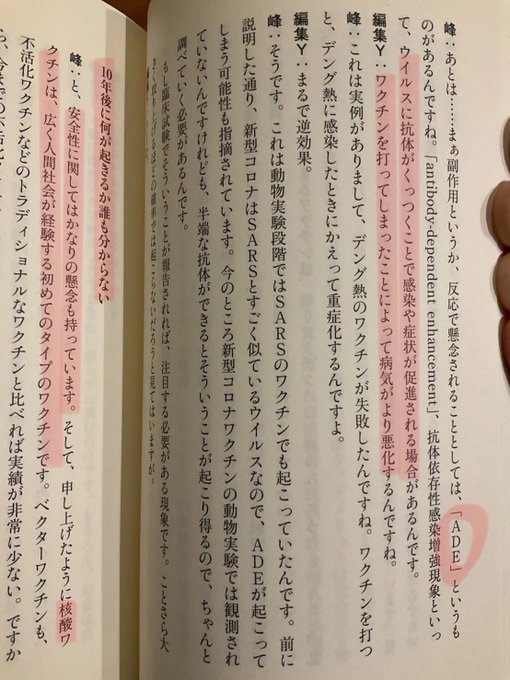 峰：あとは……まぁ副作用というか、反応で懸念されることとしては、「ADE」というも
のがあるんですね。「antibody-dependent enhancement」、抗体依存性感染増強現象といっ
て、ウイルスに抗体がくっつくことで感染や症状が促進される場合があるんです。
編集Y：ワクチンを打ってしまったことによって病気がより悪化するんですね。
峰：これは実例がありまして、デング熱のワクチンが失敗したんですね。ワクチンを打つ
と、デング熱に感染したときにかえって重症化するんですよ。
編集Y：まるで逆効果。
峰：そうです。これは動物実験段階ではSARSのワクチンでも起こっていたんです。前に
説明した通り、新型コロナはSARSとすごく似ているウイルスなので、ADEが起こって
しまう可能性も指摘されています。今のところ新型コロナワクチンの動物実験では観測され
ていないんですけれども、半端な抗体ができるとそういうことが起こり得るので、ちゃんと
調べていく必要があるんです。
もし臨床試験でそういうことが報告されれば、注目する必要がある現象です。ことさら大
きく取り上げるほどの確率では起こらないだろうと見てはいますが。
10年後に何が起きるか誰も分からない
峰：と、安全性に関してはかなりの懸念も持っています。そして、申し上げたように核酸ワ
クチンは、広く人間社会が経験する初めてのタイプのワクチンです。ベクターワクチンも、
不活化ワクチンなどのトラディショナルなワクチンと比べれば実績が非常に少ない。ですか